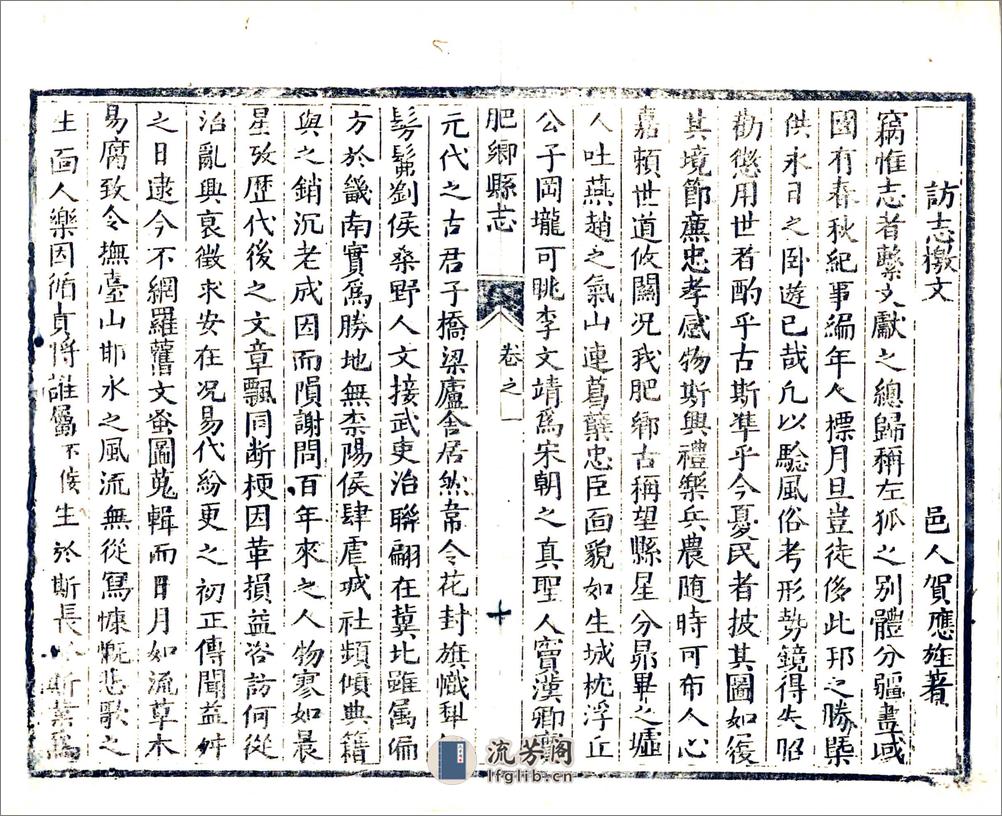 訪志檄文 邑人賀應旌著
竊惟志者繫文獻之總歸稱左狐之別體分疆畫域
國有春秋紀事編年人標月旦豈徒侈此邦之勝槩
供永日之卧遊已哉凢以騐風俗考形勢鏡得失昭
勸懲用世者酌乎古斯準乎今憂民者披其圖如履
其境節亷忠孝感物斯興禮樂兵農随時可布人心
嘉頼世道攸關况我肥鄉古稱望縣星分昴畢之墟
人吐燕趙之氣山連葛孽忠臣面貌如生城枕浮丘
公子岡壠可眺李文靖爲宋朝之真聖人竇漢卿實
肥鄉縣志 卷之一 十
元代之古君子橋梁廬舍居然韋令花封旗幟科
髣髴劉侯桑野人文接武吏治聯翩在冀北雖属偏
方於畿南實爲勝地無柰陽侯肆虐城社頻傾典籍
與之銷沉老成因而隕謝問百年來之人物寥如晨
星攷歴代後之文章飄同断梗因革損益咨訪何從
治亂興衰徵求安在况易代紛更之初正傳聞益舛
之日逮今不網羅舊文蚤圖蒐輯而日月如流草木
易腐致令撫臺山邯水之風流無從寫慷慨悲歌之
生面人樂因循責將誰屬不佞生於斯長 斯冀爲
流芳阁
lfglib.cn